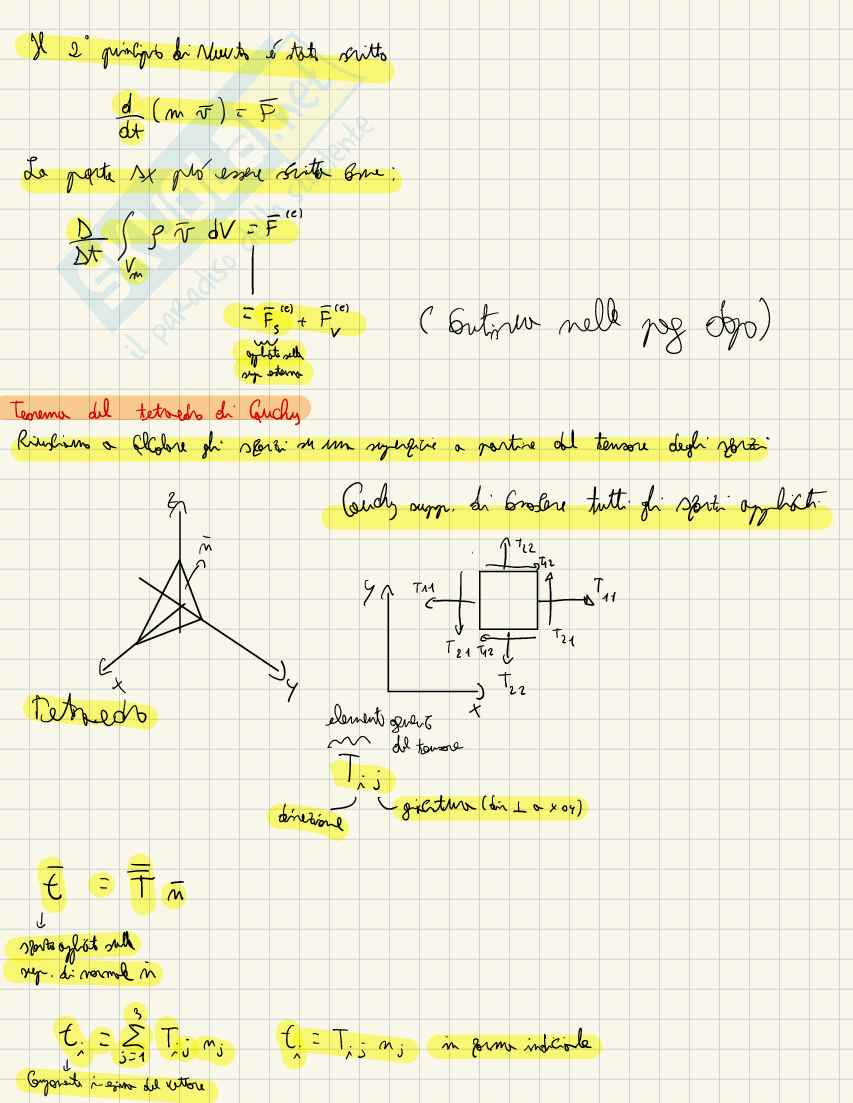 Il 2° principio di Newton è stato scritto
d/dt (m v̄) = F̄
La parte sx può essere scritta come:
D/Dt ∫_Vm ρ v̄ dV = F̄^(e)
= F̄_s^(e) + F̄_V^(e)
applicato sulla
sup. esterna
(Continua nelle pag dopo)
Teorema del tetraedro di Cauchy
Riusciamo a calcolare gli sforzi su una superficie a partire dal tensore degli sforzi
Cauchy supp. di conoscere tutti gli sforzi applicati
z
n̄
x
y
Tetraedro
y
x
T22
T12
T11
T11
T21
T21
T12
T22
element generic
del tensore
T_ij
direzione
giacitura (dir ⊥ a x o y)
t̄ = T̿ n̄
sforzo applicato sulla
sup. di normale n̄
t_i = Σ_{j=1}^{3} T_ij n_j
t_i = T_ij n_j in forma indiciale
Componente i-esima del vettore
skuola.net
il paradiso dello studente